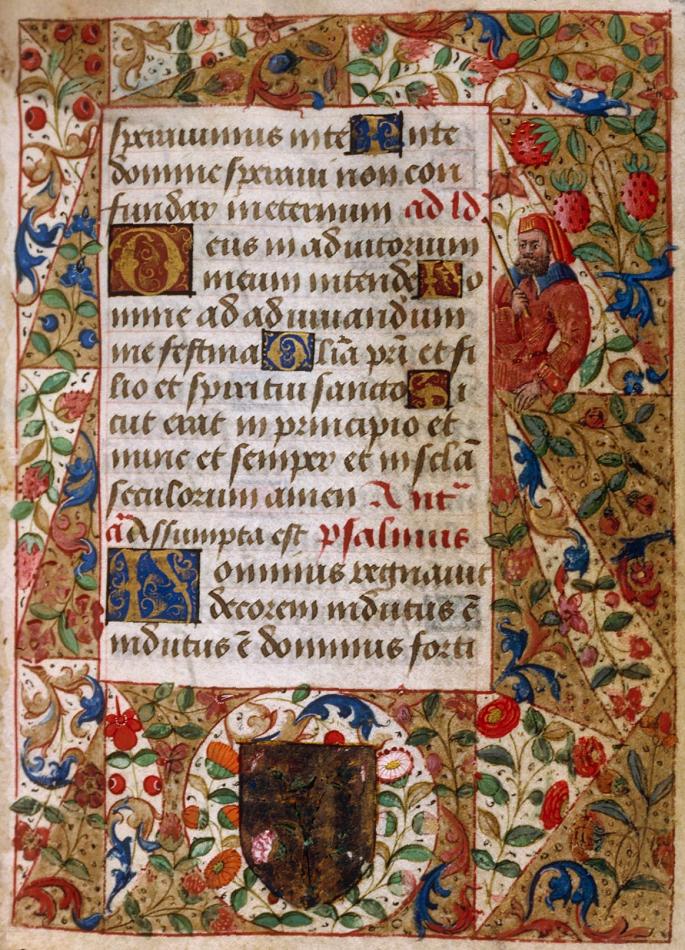 sperauimus in te In te
domine speraui non con
fundar in eternum ad lds
Deus in adiutorium
meum intende Do
mine ad adiuuandum
me festina Glīa pr̄i et fi
lio et spiritui sancto Si
cut erat in principio et
nunc et semper et in sclā
seculorum amen Ant̄
ā Assumpta est psalmus
Dominus regnauit
decorem indutus ē
indutus ē dominus forti